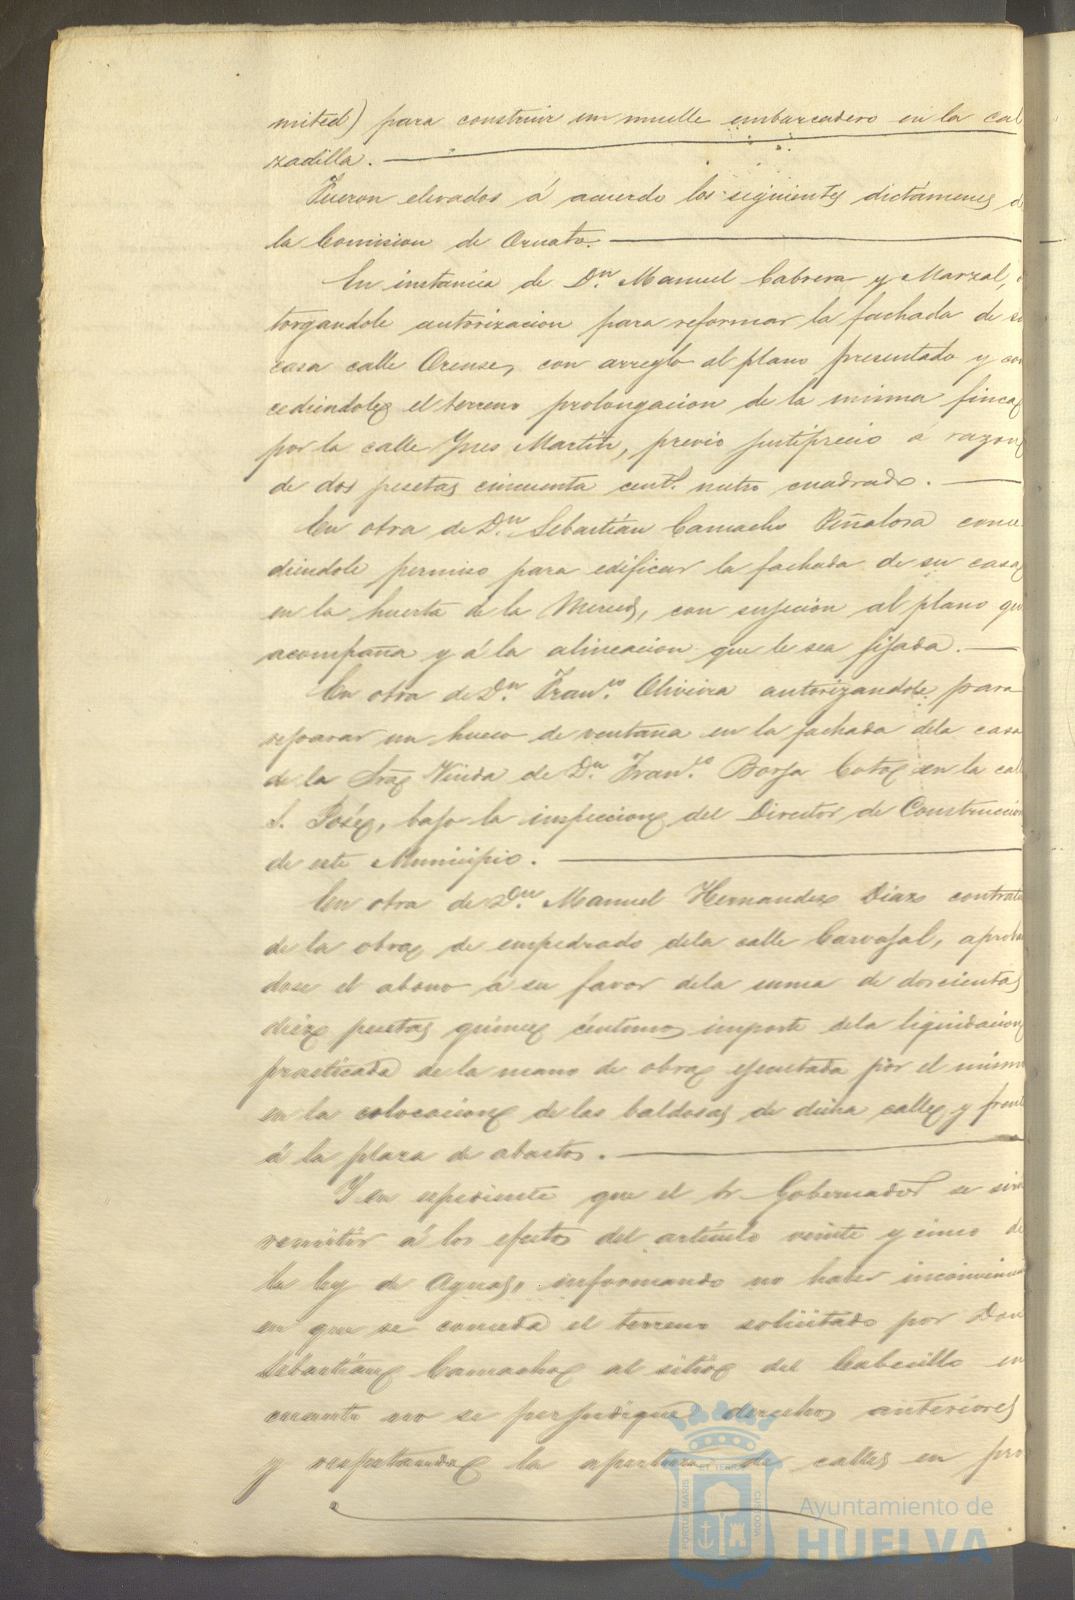 mited) para construir un muelle embarcadero en la cal
zadilla.
Fueron elevados á acuerdo los siguientes dictámenes d
la Comision de Ornato.
En instancia de Dn. Manuel Cabrera y Marzal, o
torgandole autorizacion para reformar la fachada de su
casa calle Orense, con arreglo al plano presentado y con
cediendole el terreno prolongacion de la misma finca
por la calle Ynes Martin, previo justiprecio á razon
de dos pesetas cincuenta cent.s metro cuadrado.
En otra de Dn. Sebastián Camacho Peñalosa conce
diendole permiso para edificar la fachada de su casa
en la huerta de la Merced, con sujecion al plano que
acompaña y á la alineacion que le sea fijada.
En otra de Dn. Fran.co Oliveira autorizandole para
reparar un hueco de ventana en la fachada dela casa
de la Sra Viuda de Dn. Fran.co Borja Cota en la cal
S. José, bajo la inspeccion del Director de Construccion
de este Municipio.
En otra de Dn. Manuel Hernandez Diaz contrata
de la obra de empedrado dela calle Carvajal, aproban
dose el abono á su favor dela suma de doscientas
diez pesetas quince céntimos importe dela liquidacion
practicada de la mano de obra ejecutada por el mismo
en la colocacion de las baldosas de dicha calle y frente
á la plaza de abastos.
Y en espediente que el Sr Gobernador se sirve
remitir á los efectos del artículo veinte y cinco de
la ley de Aguas, informando no haber inconvenien
en que se conceda el terreno solicitado por Don
Sebastián Camacho al sitio del Cabecillo en
cuanto no se perjudique derechos anteriores
y respetando la apertura de calles en pro
PORTUS MARIS ET TERRAE CUSTODIA
Ayuntamiento de
HUELVA